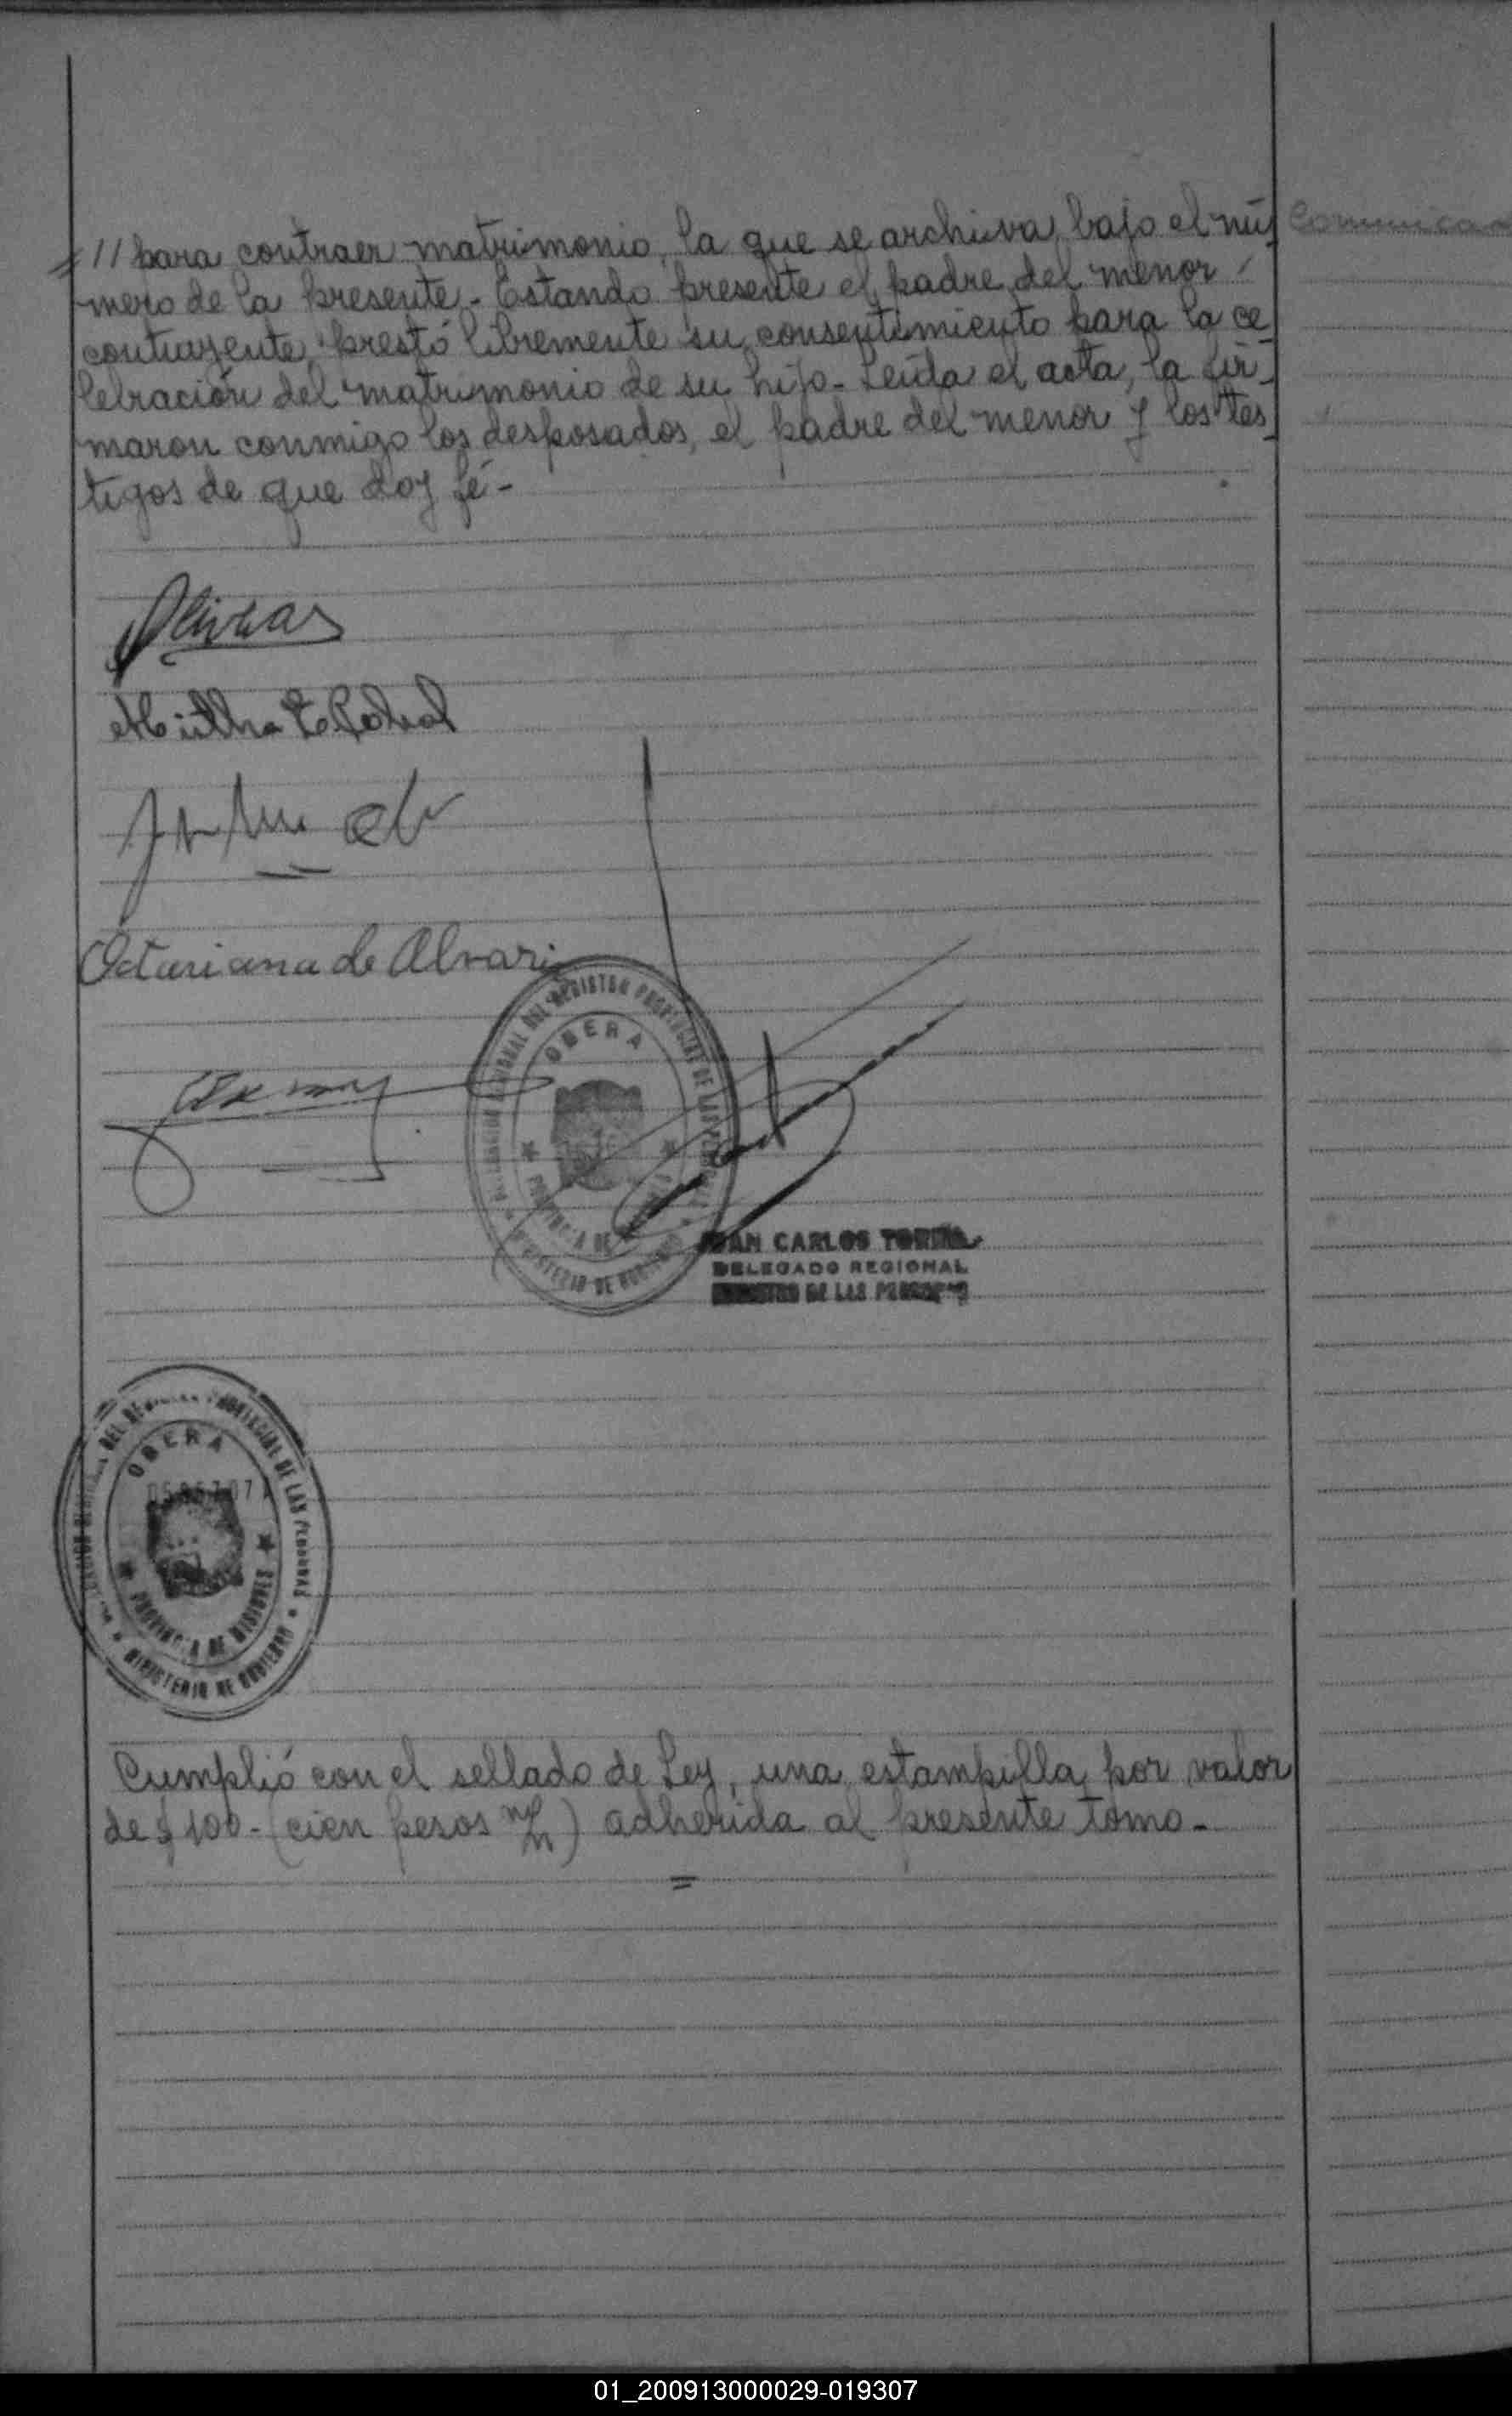 // para contraer matrimonio, la que se archiva bajo el nú
mero de la presente.- Estando presente el padre del menor
contrayente, prestó libremente su consentimiento para la ce
lebración del matrimonio de su hijo.- Leída el acta, la fir-
maron conmigo los desposados, el padre del menor y los tes
tigos de que doy fé.-
Octariana de Alvari
OBERA
PROVINCIA DE
MINISTERIO DE GOBIERNO
JUAN CARLOS
DELEGADO REGIONAL
REGISTRO DE LAS PERSONAS
OBERA
PROVINCIAL DE LAS PERSONAS
PROVINCIA DE MISIONES
MINISTERIO DE GOBIERNO
Cumplió con el sellado de Ley, una estampilla por valor
de $ 100.- (cien pesos m/n) adherida al presente tomo.-
=
01_200913000029-019307